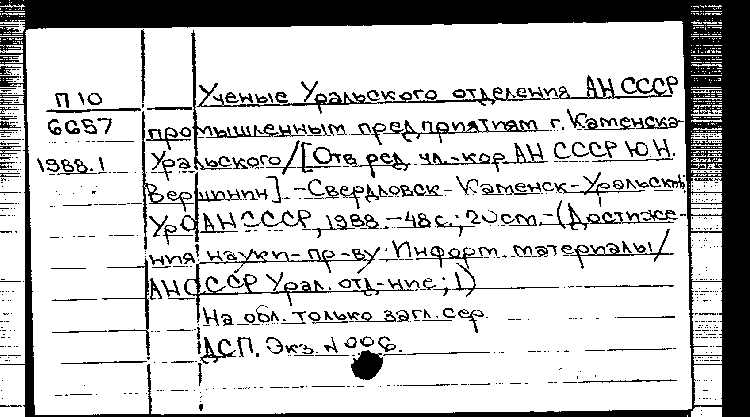 П10
6687
1988.1
Ученые Уральского отделения АН СССР
промышленным предприятиям г. Каменска-
Уральского / [Отв. ред. чл.-кор. АН СССР Ю.Н.
Вершинин]. - Свердловск - Каменск-Уральский:
УрО АН СССР, 1988. - 48 с.; 20 cm. - (Достиже-
ния науки - пр-ву: Информ. материалы /
АН СССР Урал. отд-ние; 1)
На обл. только загл. сер.
ДСП. Экз. N 006.